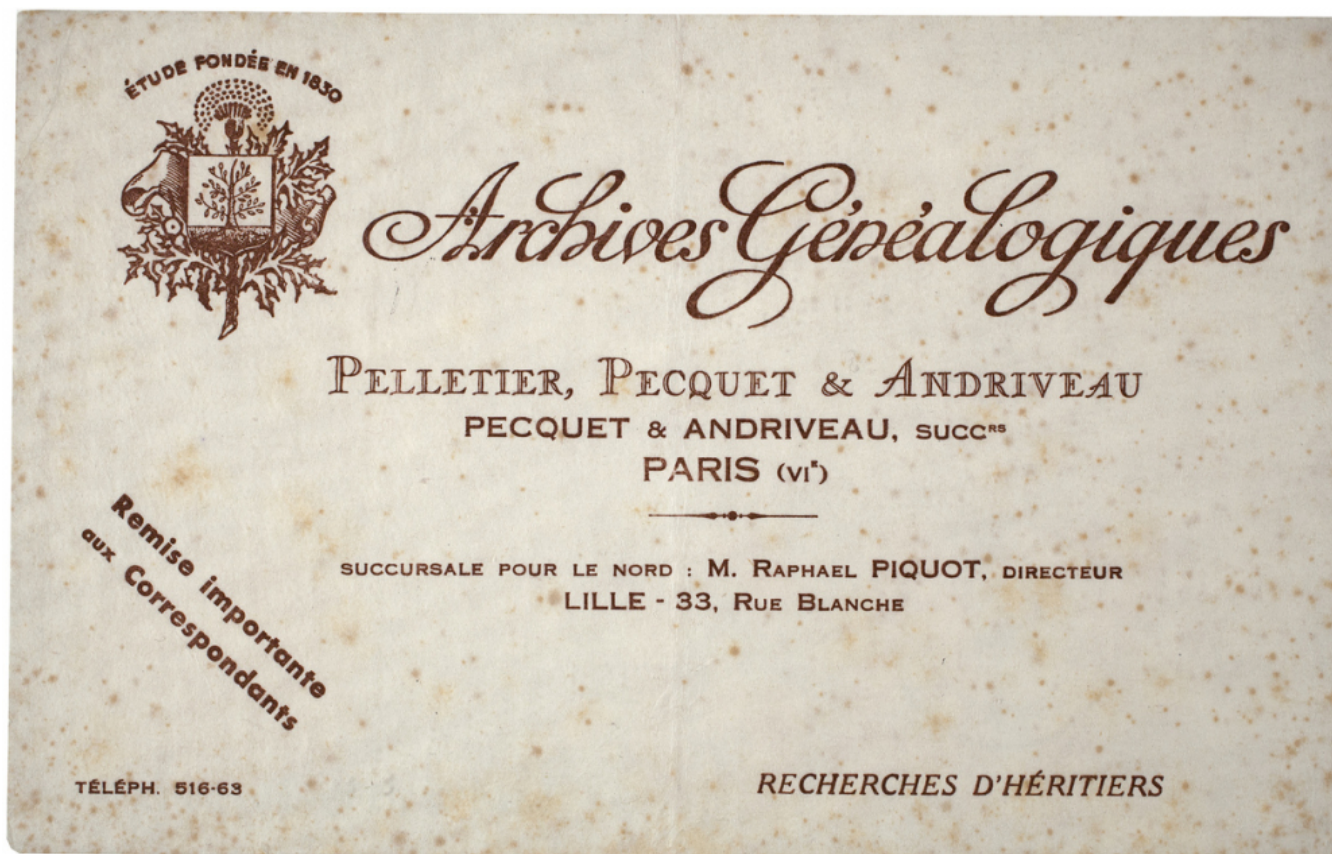 ÉTUDE FONDÉE EN 1830
Archives Généalogiques
PELLETIER, PECQUET & ANDRIVEAU
PECQUET & ANDRIVEAU, SUCCRS
PARIS (VIe)
SUCCURSALE POUR LE NORD : M. RAPHAEL PIQUOT, DIRECTEUR
LILLE - 33, RUE BLANCHE
Remise importante
aux Correspondants
TÉLÉPH. 516-63
RECHERCHES D'HÉRITIERS